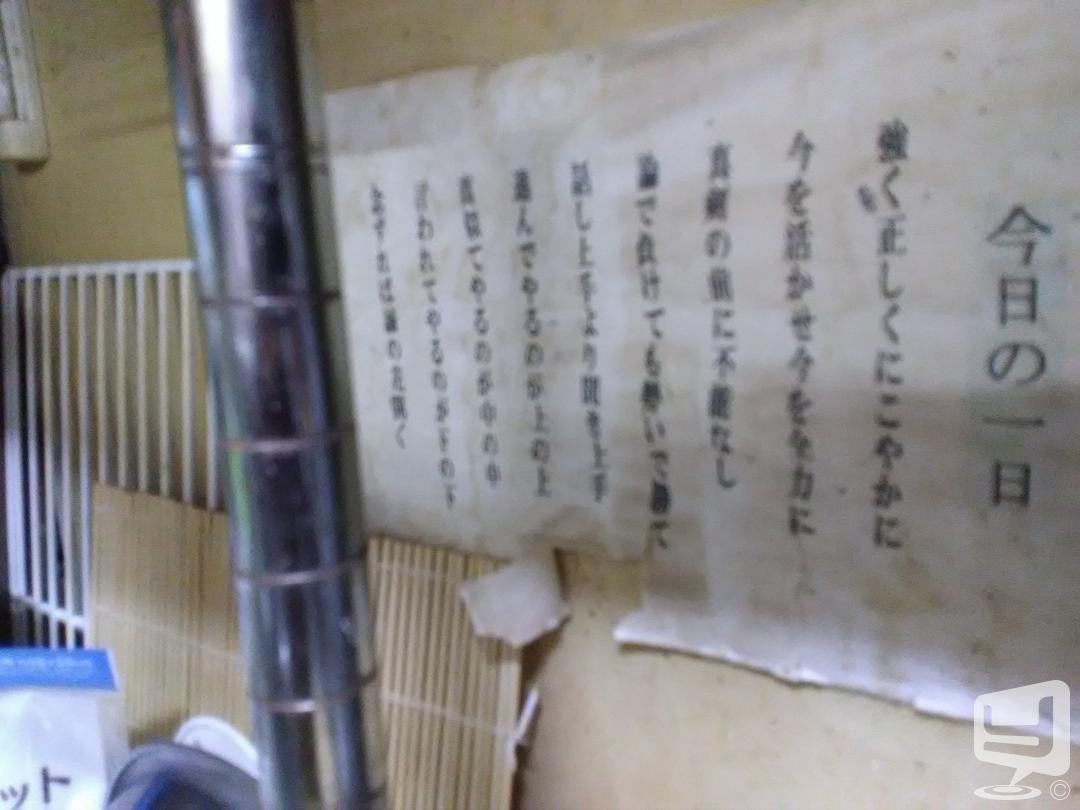 今日の一日
強く正しくにこやかに
今を活かせ今を全力に
真剣の前に不能なし
論で負けても勢いで勝て
話し上手より聞き上手
進んでやるのが上の上
真似てやるのが中の中
言われてやるのが下の下
ット